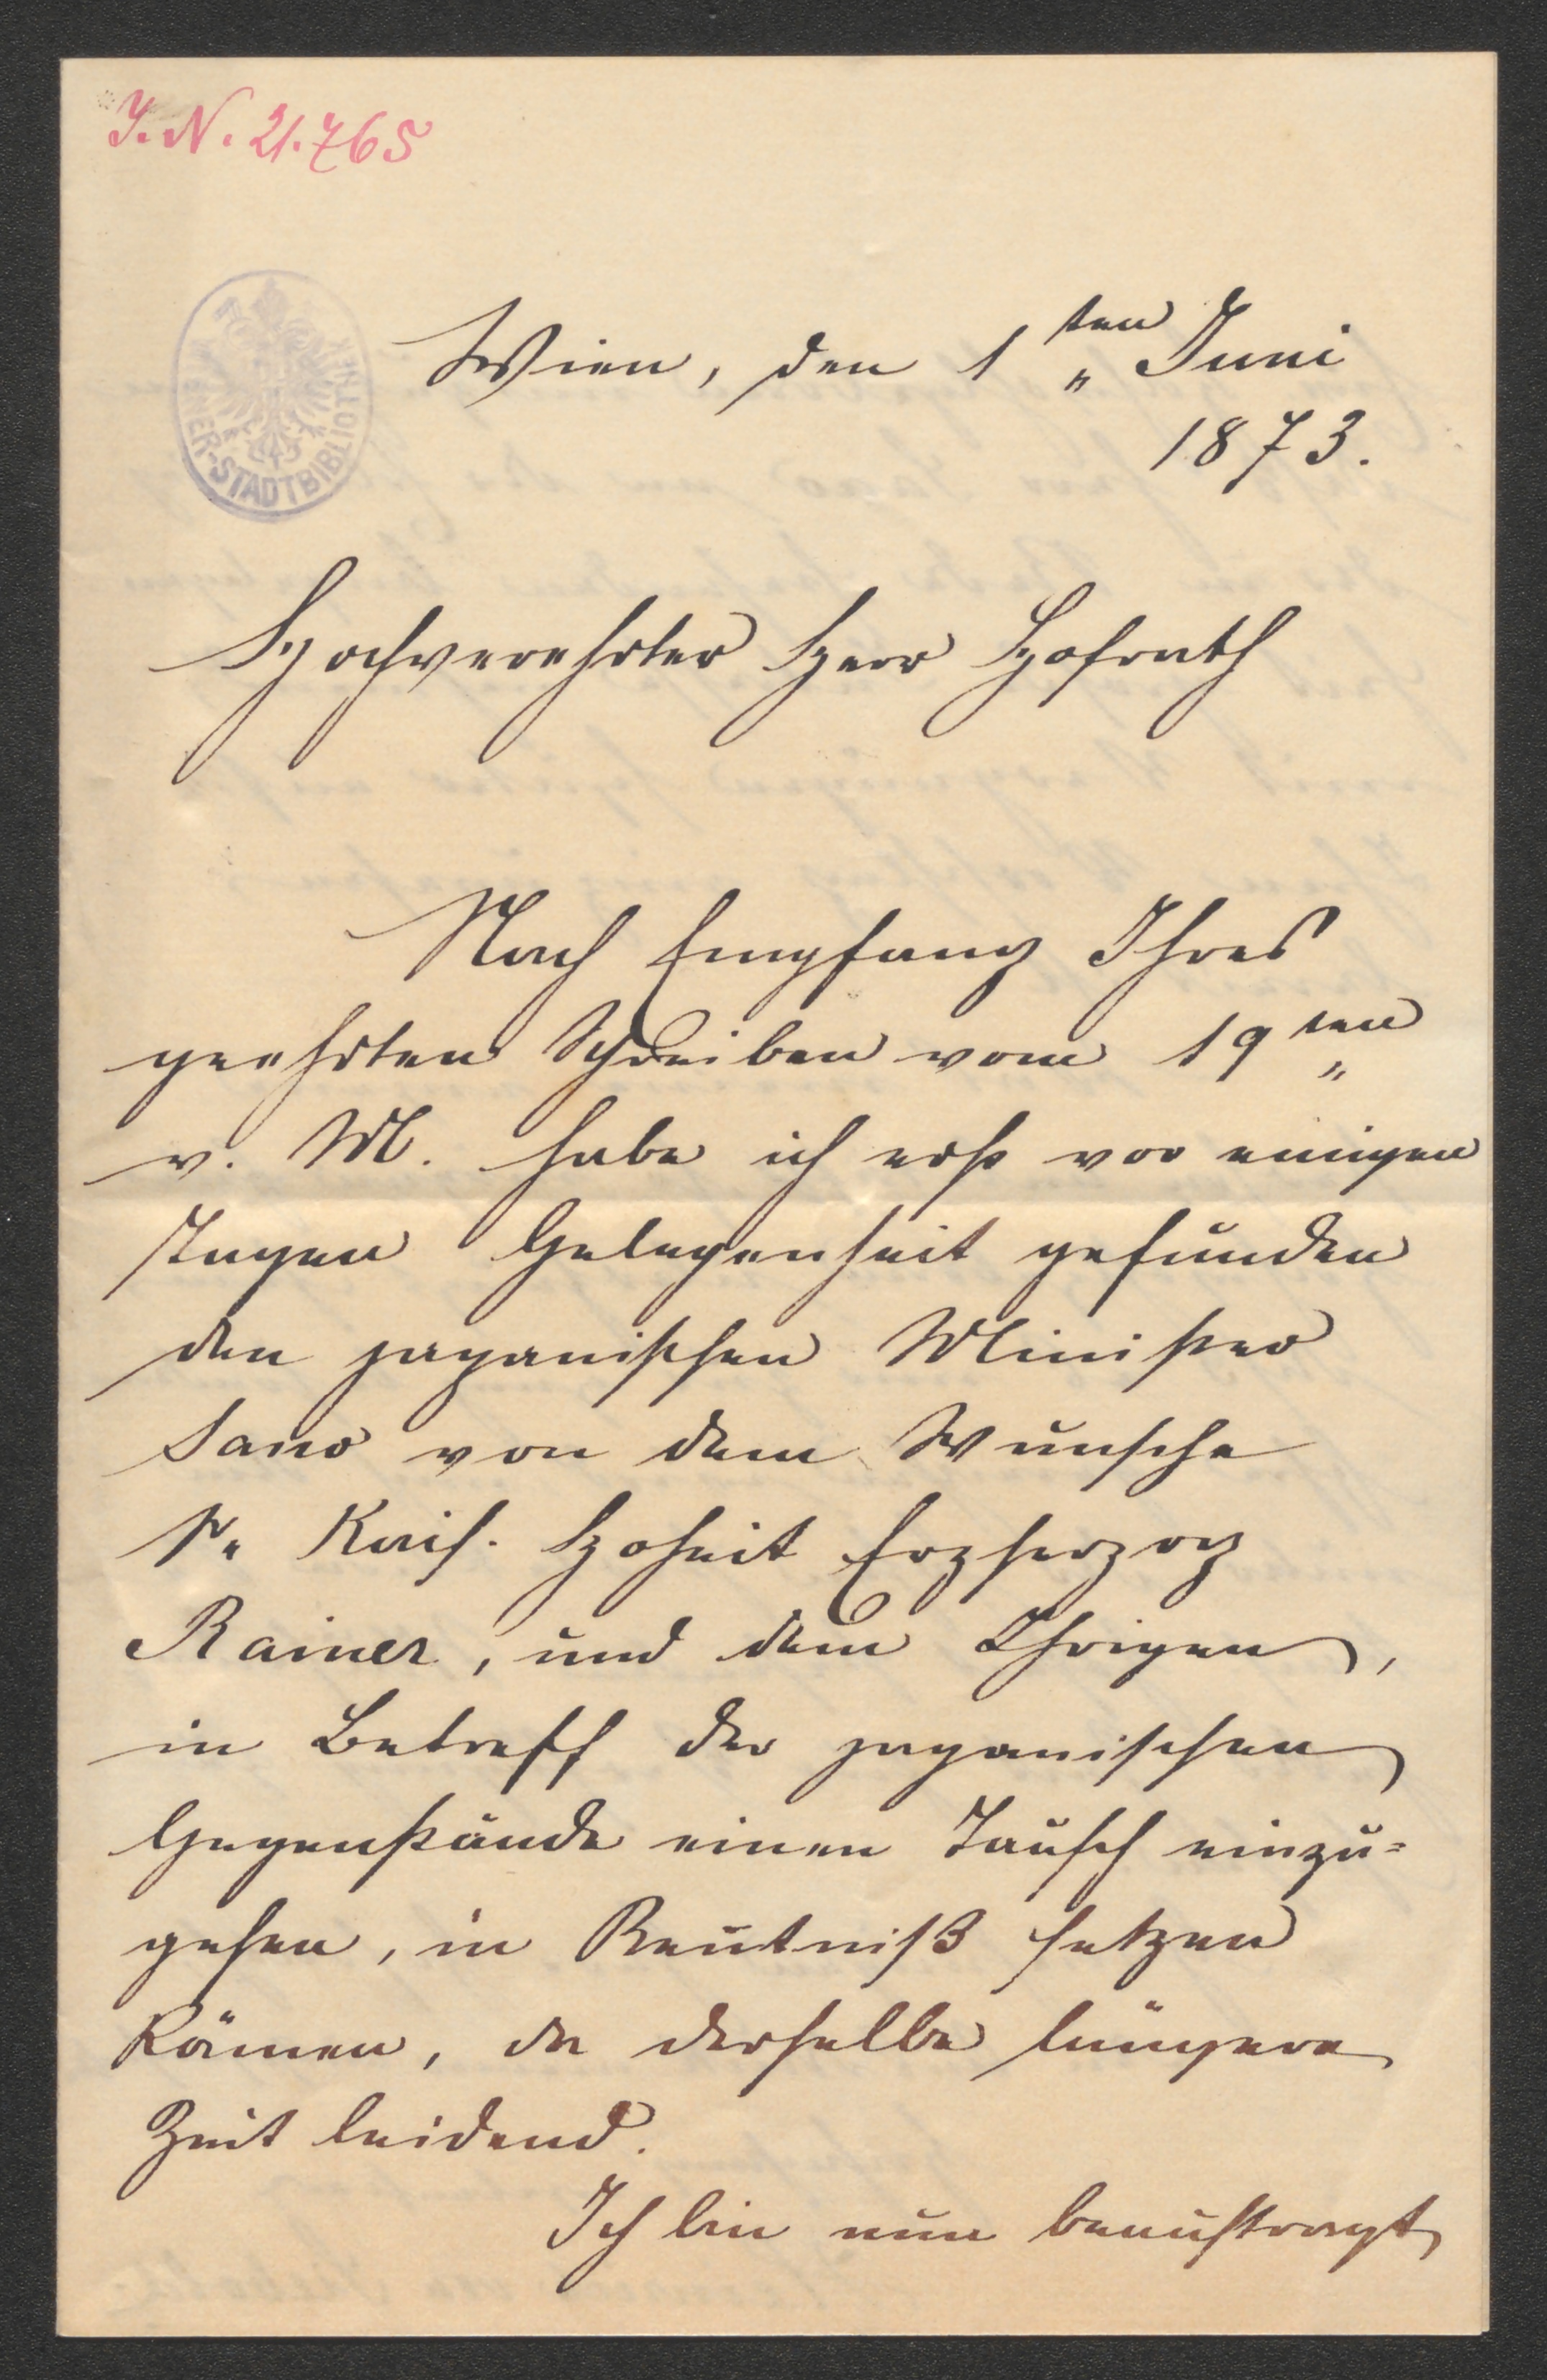 J. N. 21.765
WIENER-STADTBIBLIOTHEK
Wien, den 1ten „ Juni
1873.
Hochverehrter Herr Hofrath
Nach Empfang Ihres
geehrten Schreiben vom 19ten „
v. M. habe ich erst vor einigen
Tagen Gelegenheit gefunden
den japanischen Minister
Sano von dem Wunsche
Sr. Kais. Hoheit Erzherzog
Rainer, und dem Ihrigen,
in Betreff der japanischen
Gegenstände einen Tausch einzu=
gehen, in Kentniß setzen
können, da derselbe längere
Zeit leidend.
Ich bin nun beauftragt